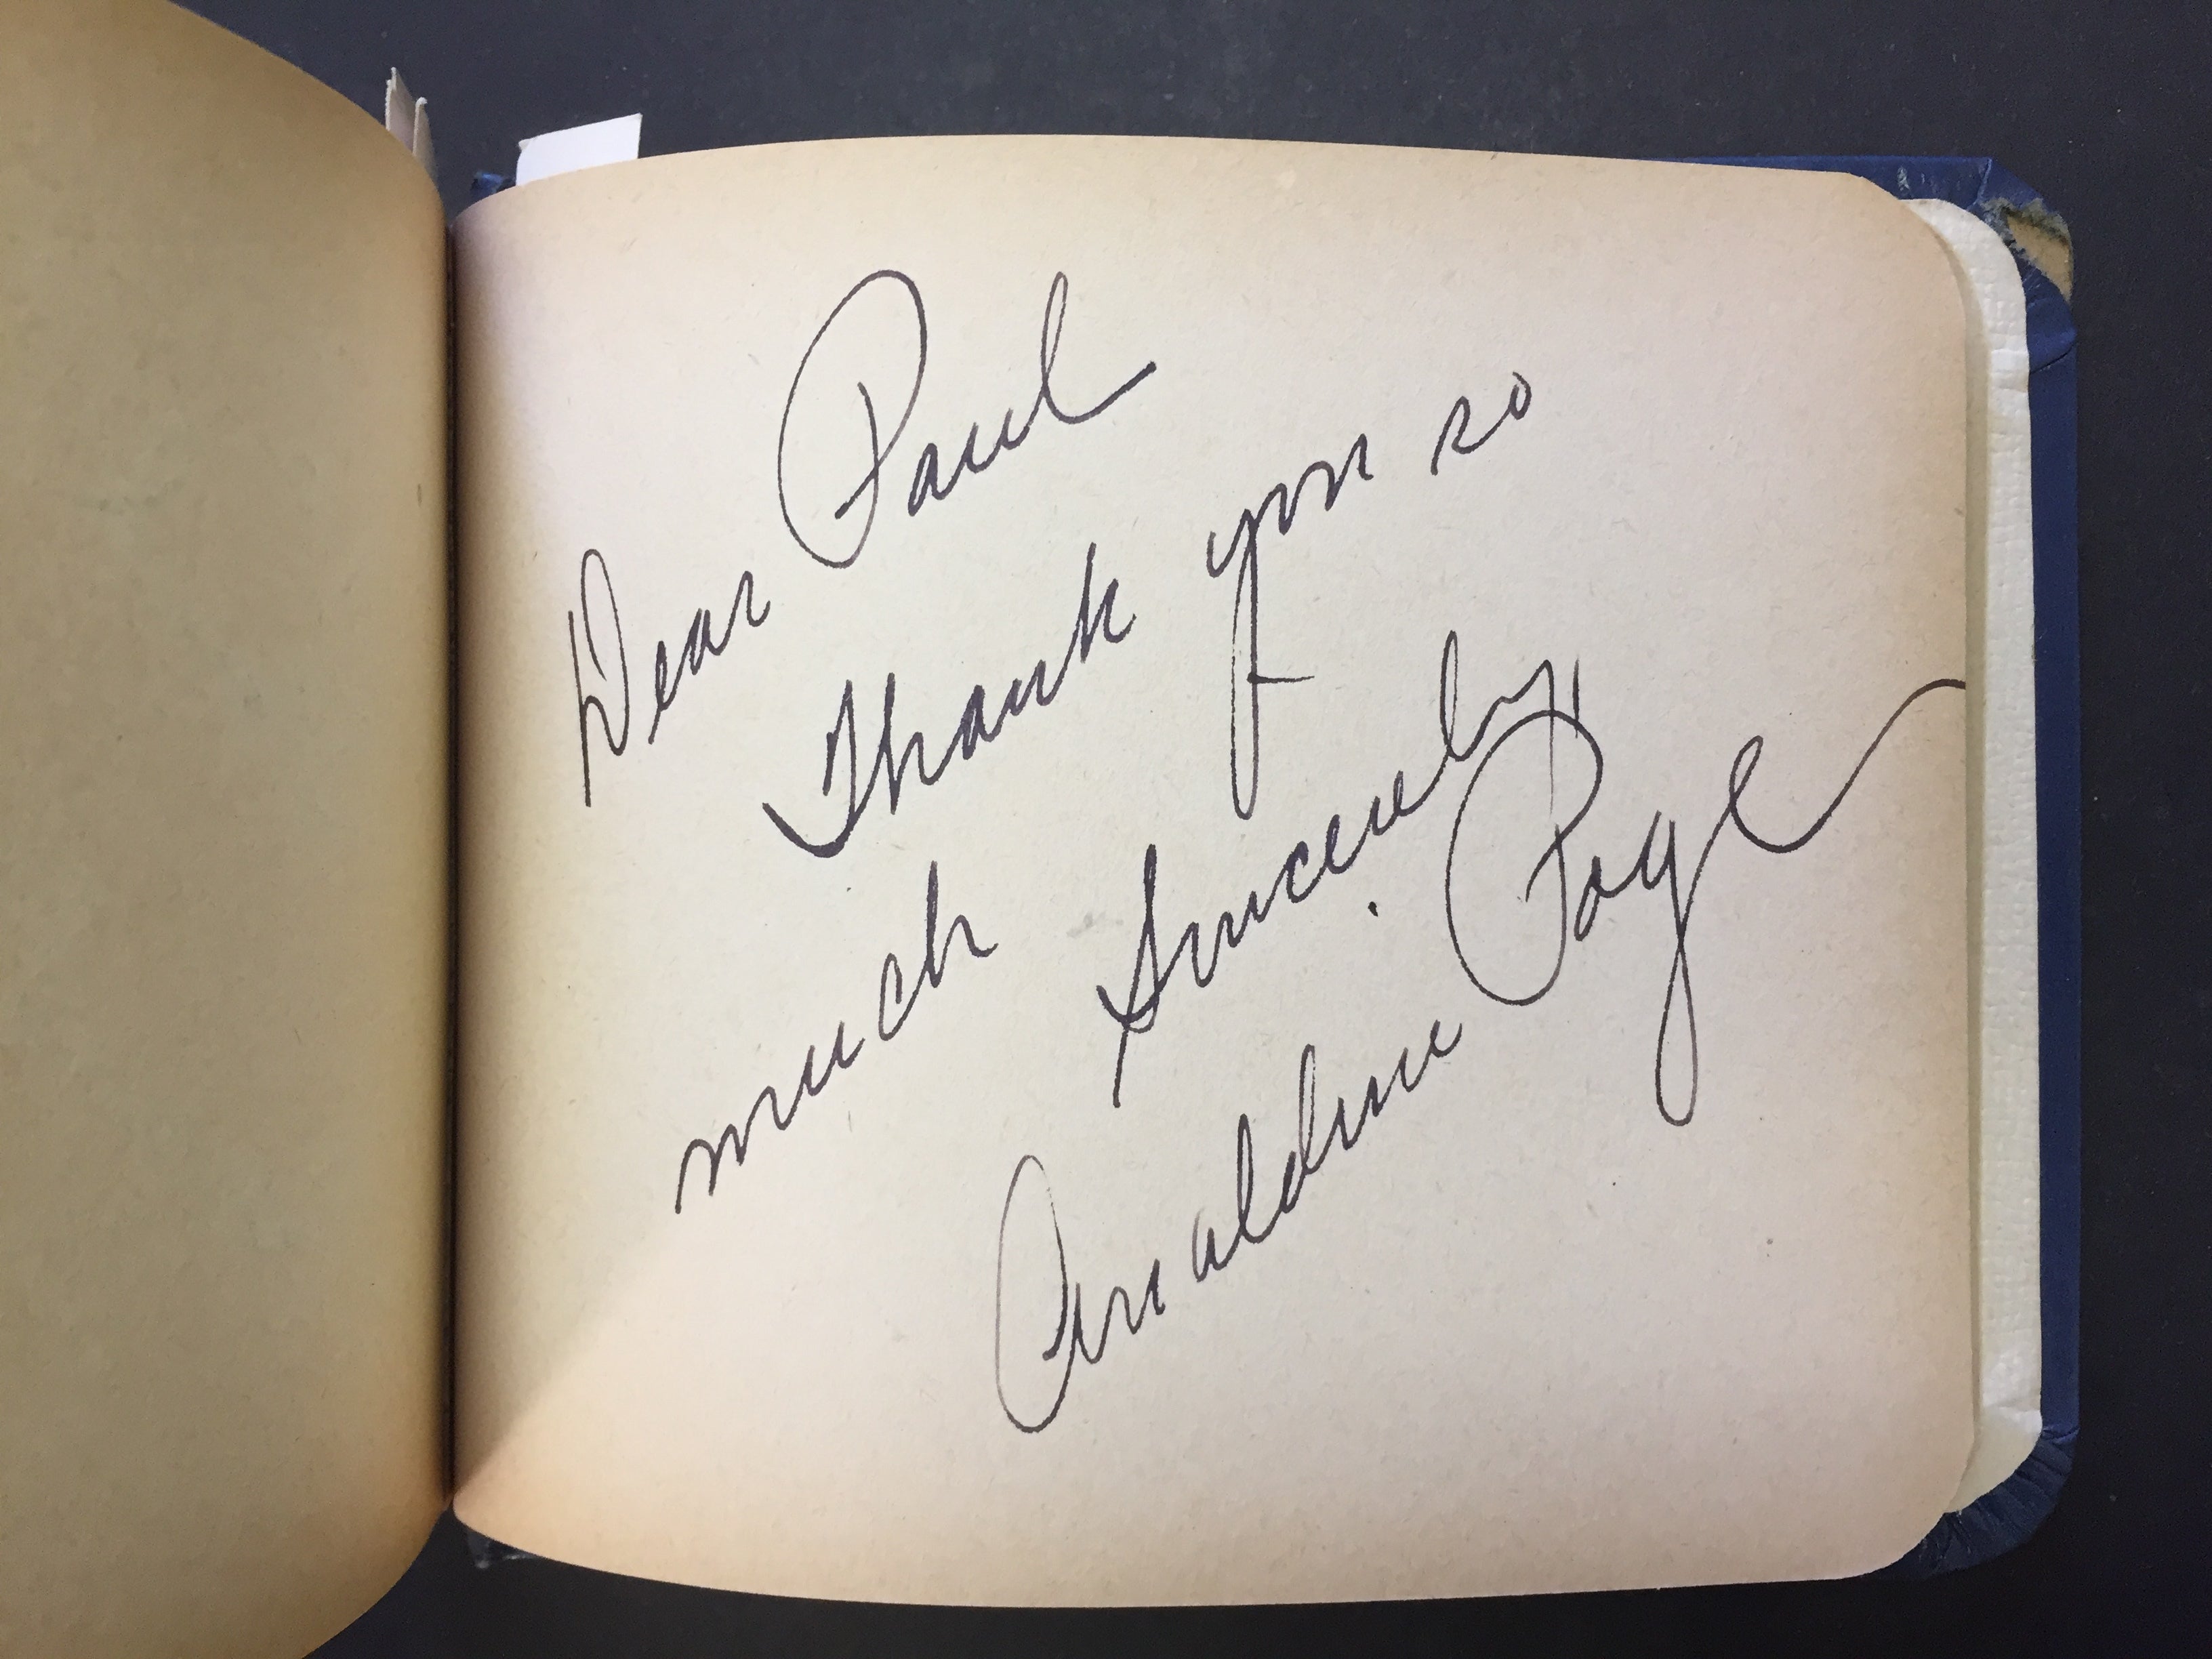 Dear Paul
Thank you so
much Sincerely,
Geraldine Page